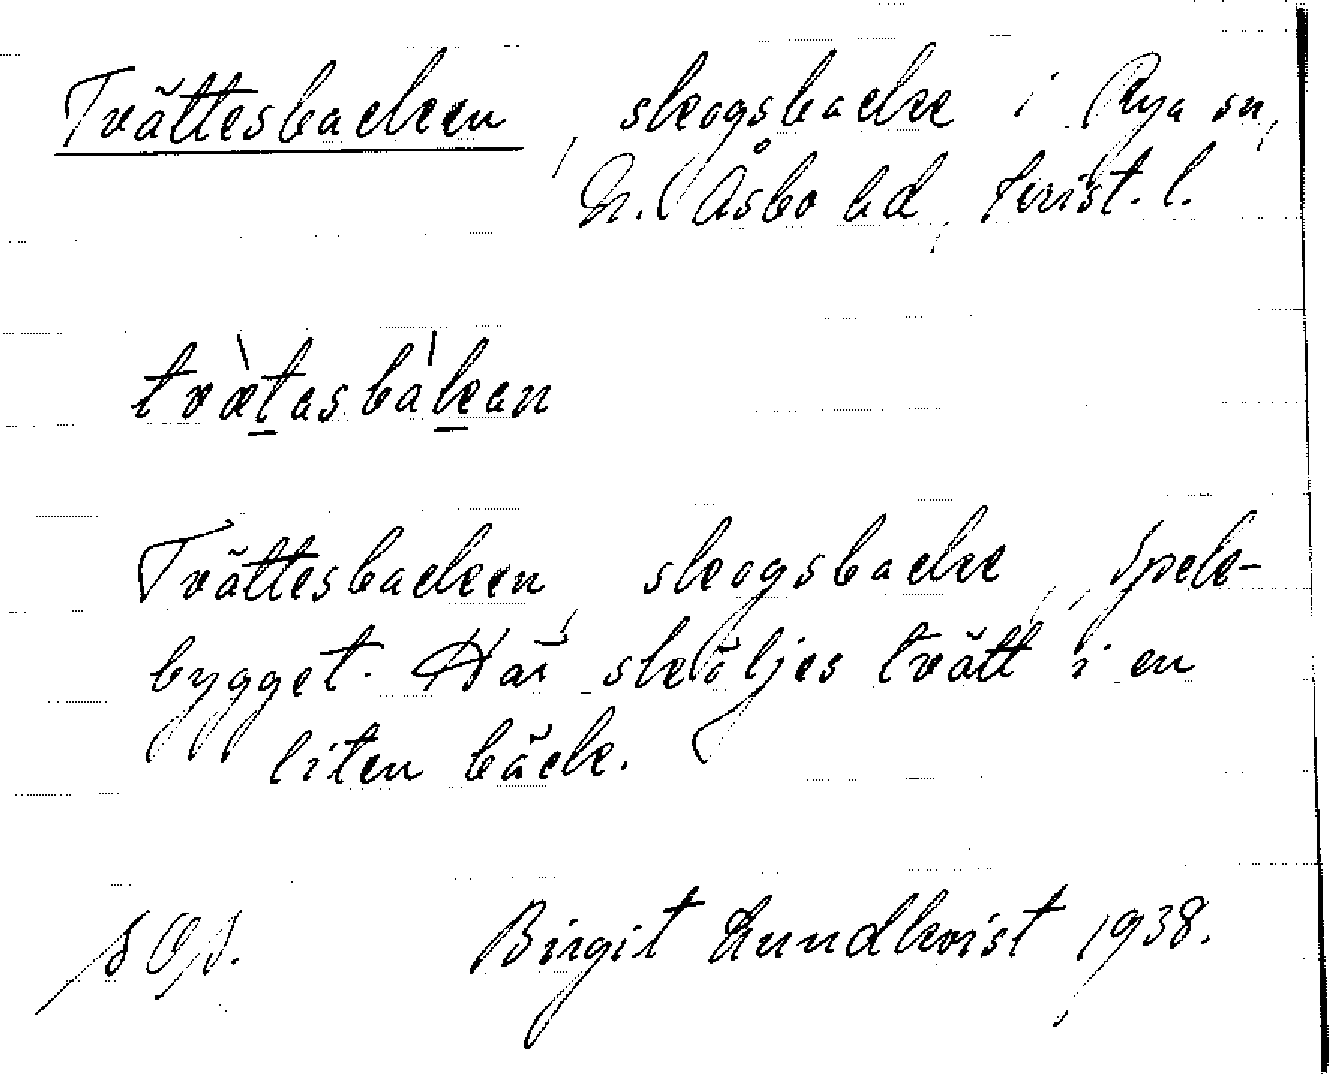 Tvättesbacken, skogsbacke i Rya sn,
N. Åsbo hd, Krist. l.
tvætasbakan
Tvättesbacken, skogsbacke, Spek-
bygget. Här sköljes tvätt i en
liten bäck.
Birgit Lundkvist 1938.